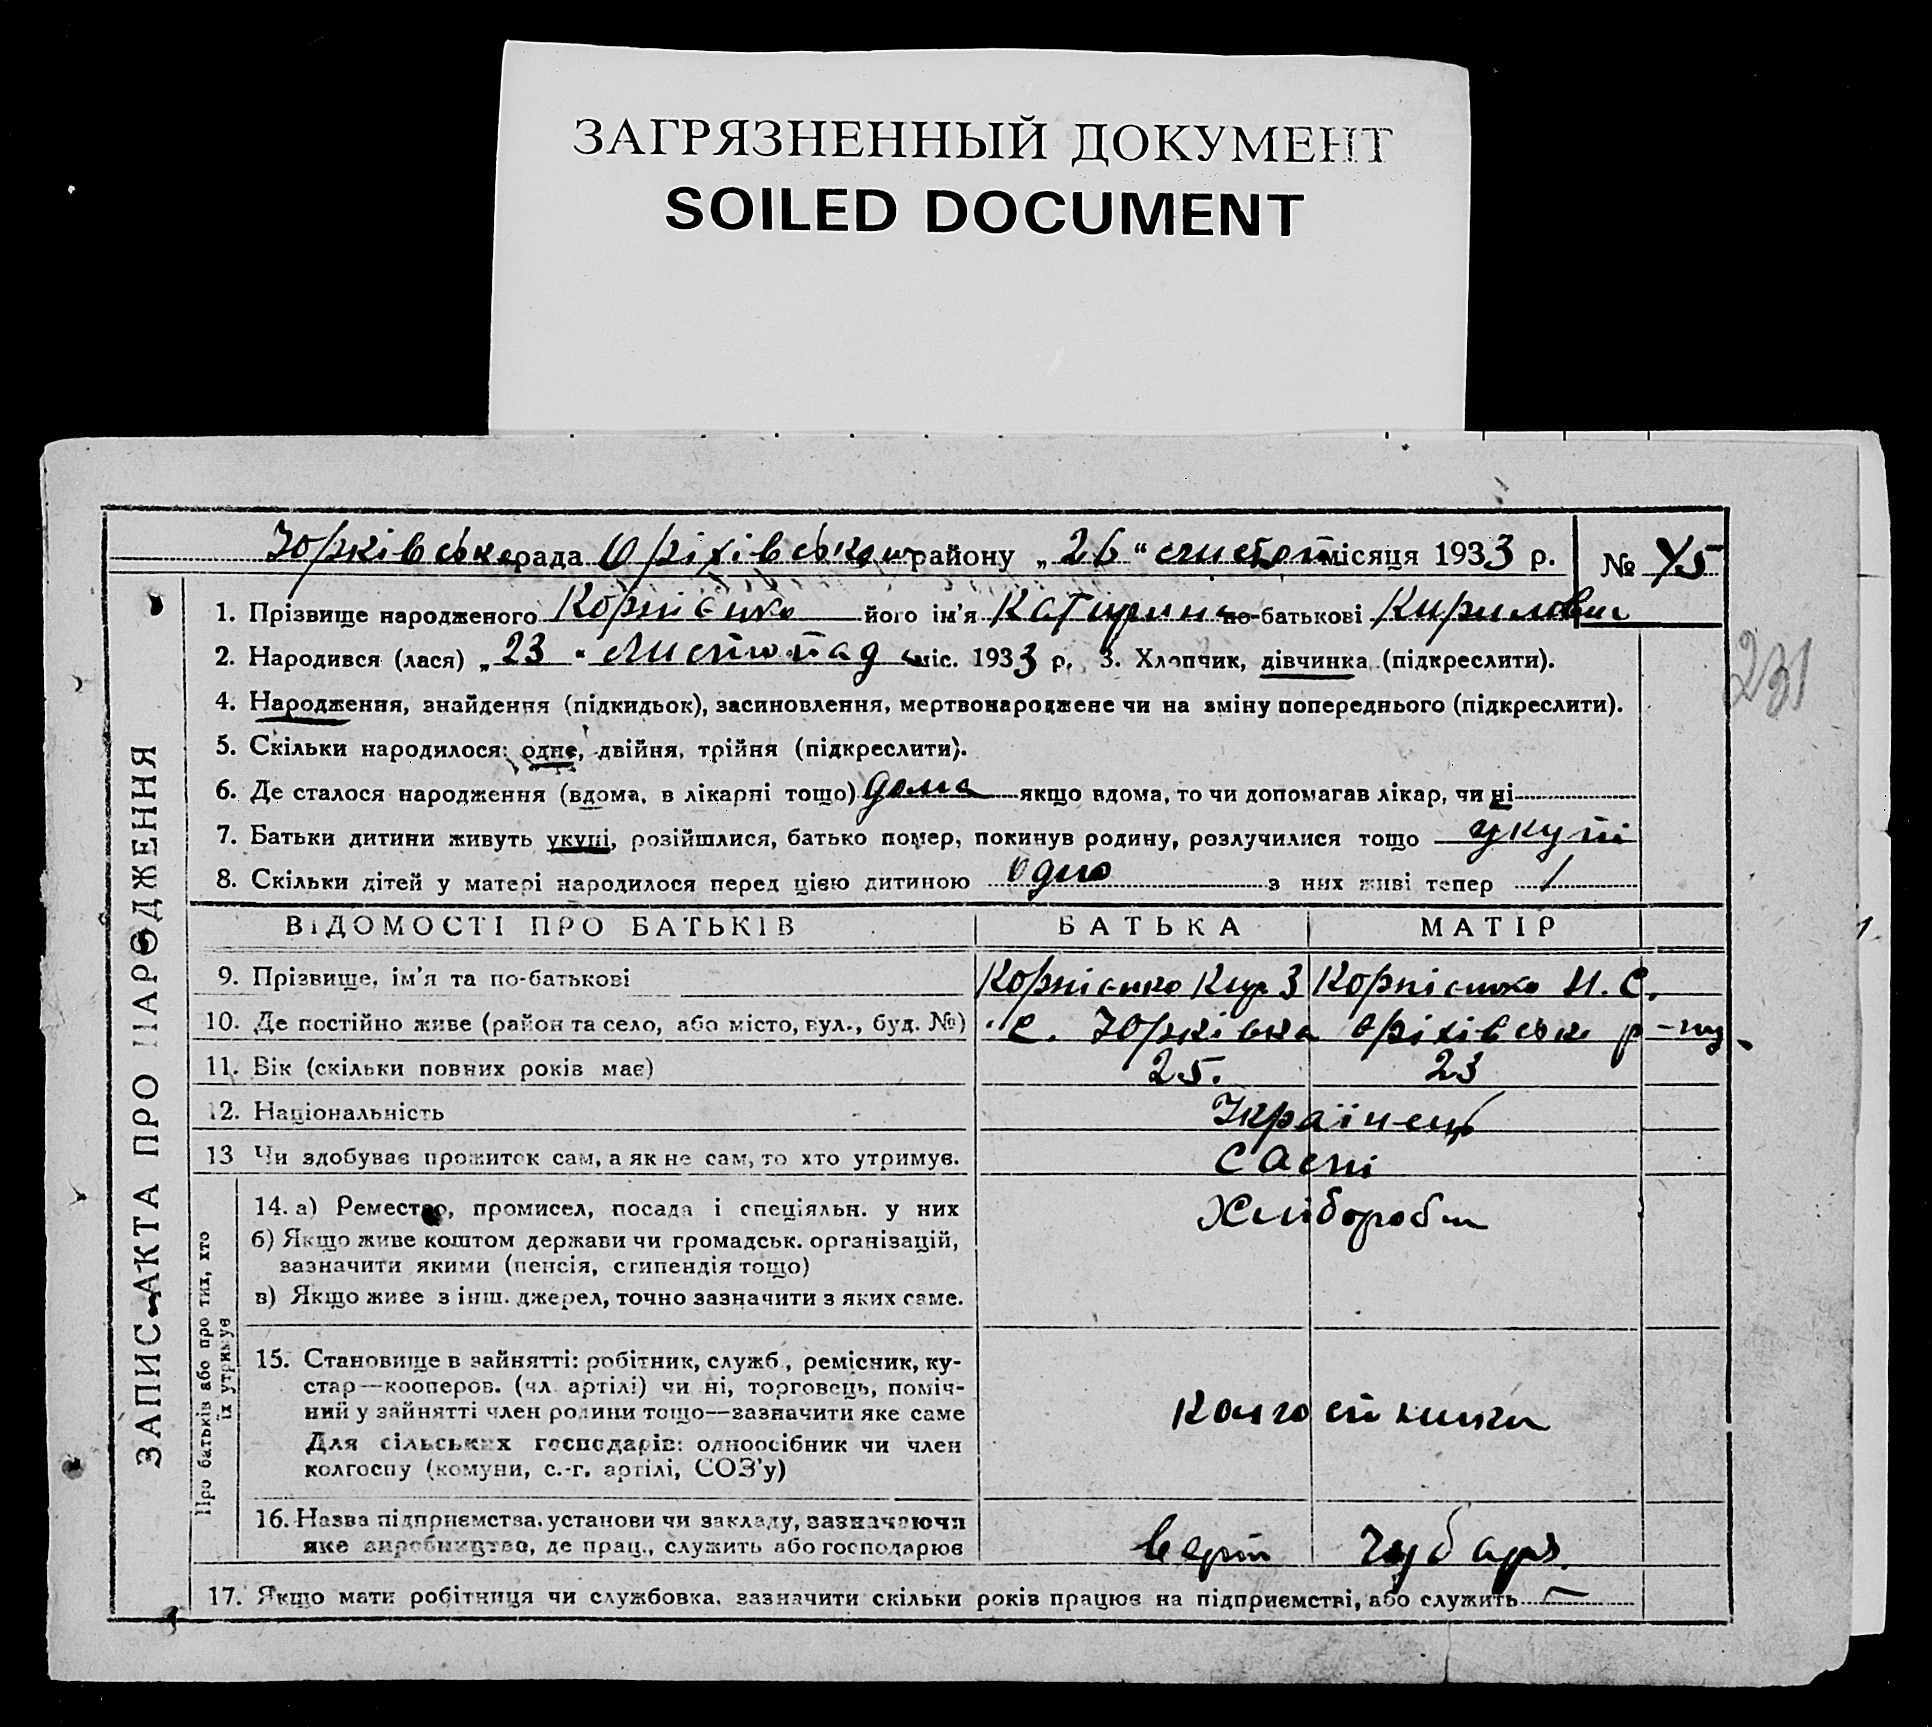 ЗАГРЯЗНЕННЫЙ ДОКУМЕНТ
SOILED DOCUMENT
Юрківська рада Оріхівського району „26“ листоп місяця 1933 р. № 45
1. Прізвище народженого Корнієнко його ім'я Катерина по-батькові Кирилов
2. Народився (лася) „23 " листопад міс. 1933 р. 3. Хлопчик, дівчинка (підкреслити).
4. Народження, знайдення (підкидьок), засиновлення, мертвонароджене чи на зміну попереднього (підкреслити).
5. Скільки народилося: одне, двійня, трійня (підкреслити).
6. Де сталося народження (вдома, в лікарні тощо) дома якщо вдома, то чи допомагав лікар, чи ні
7. Батьки дитини живуть укупі, розійшлися, батько помер, покинув родину, розлучилися тощо укупі
8. Скільки дітей у матері народилося перед цією дитиною одно з них живі тепер 1
231
ЗАПИС АКТА ПРО НАРОДЖЕННЯ
ВІДОМОСТІ ПРО БАТЬКІВ БАТЬКА МАТІР
9. Прізвище, ім'я та по-батькові Корнієнко Кир З Корнієнко Н. С.
10. Де постійно живе (район та село, або місто, вул., буд. №) с. Юрківка Оріхівськ р-ну
11. Вік (скільки повних років має) 25. 23
12. Національність Українець
13 Чи здобуває прожиток сам, а як не сам, то хто утримує. Самі
Про батьків або про тих, хто
їх утримує
14. а) Ремество, промисел, посада і спеціяльн. у них Хлібороби
б) Якщо живе коштом держави чи громадськ. організацій,
зазначити якими (пенсія, стипендія тощо)
в) Якщо живе з інш. джерел, точно зазначити з яких саме.
15. Становище в зайнятті: робітник, служб., ремісник, ку-
стар—кооперов. (чл. артілі) чи ні, торговець, поміч-
ний у зайнятті член родини тощо—зазначити яке саме
Для сільських господарів: одноосібник чи член
колгоспу (комуни, с.-г. артілі, СОЗ'у)
Колгоспники
16. Назва підприємства, установи чи закладу, зазначаючи
яке виробництво, де прац., служить або господарює
Чубаря.
17. Якщо мати робітниця чи службовка, зазначити скільки років працює на підприємстві, або служить —